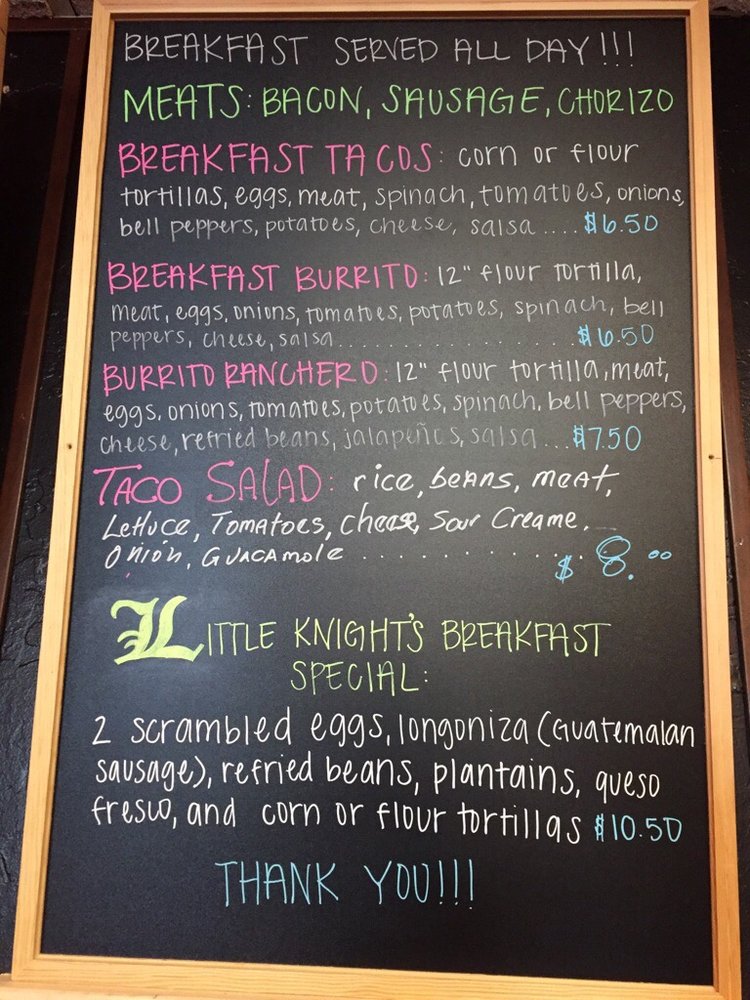 BREAKFAST SERVED ALL DAY!!!
MEATS: BACON, SAUSAGE, CHORIZO
BREAKFAST TACOS: corn or flour
tortillas, eggs, meat, spinach, tomatoes, onions,
bell peppers, potatoes, cheese, salsa .... $6.50
BREAKFAST BURRITO: 12" flour tortilla,
meat, eggs, onions, tomatoes, potatoes, spinach, bell
peppers, cheese, salsa..................... $6.50
BURRITO RANCHERO: 12" flour tortilla, meat,
eggs, onions, tomatoes, potatoes, spinach, bell peppers,
cheese, refried beans, jalapeños, salsa ... $7.50
TACO SALAD: rice, beans, meat,
Lettuce, Tomatoes, cheese, Sour Creame,
Onion, Guacamole .................. $ 8.00
LITTLE KNIGHT'S BREAKFAST
SPECIAL:
2 scrambled eggs, longoniza (Guatemalan
sausage), refried beans, plantains, queso
fresco, and corn or flour tortillas $10.50
THANK YOU!!!